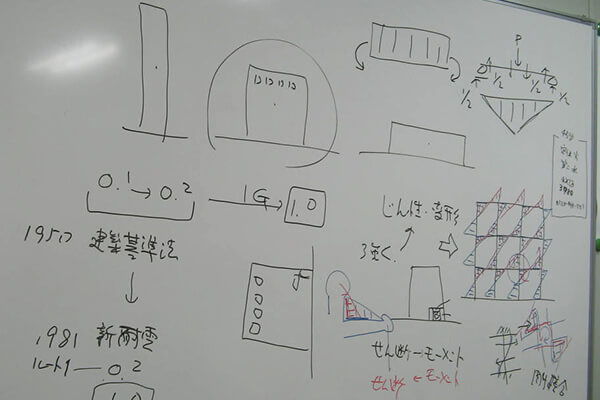 P
1/2 1/2
1/2 1/2
0.1→0.2 1G→ 1.0
1950 建築基準法
じん性・変形
強く
1981 新耐震
ルート1—0.2
1.0
せん断ーモーメント
せん断←モーメント
剛接合